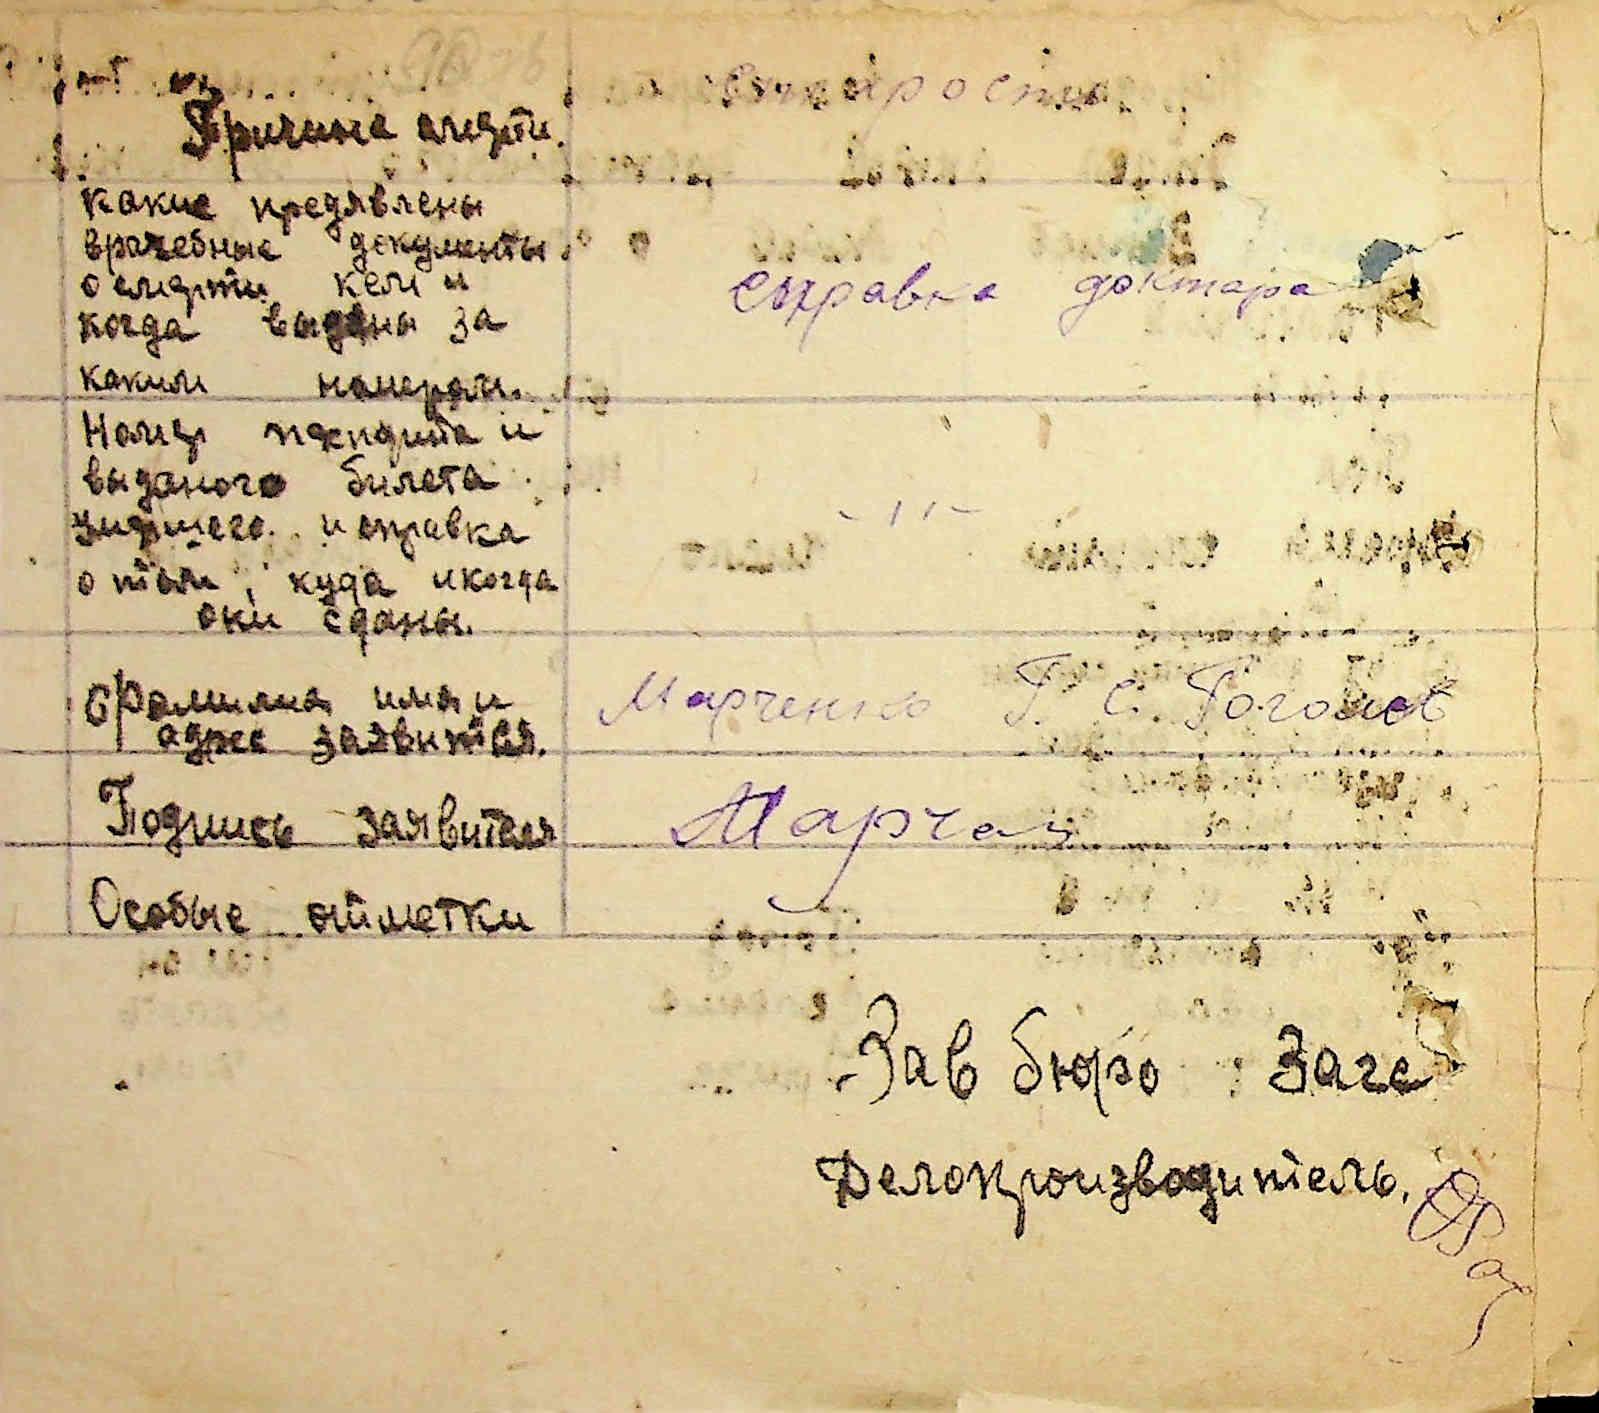 Причина смерти. старости
какие предявлены
врачебные документы
о смерти кем и справка доктара
когда выданы за
каким номером.
Номер паспорта и
выданого билета
умершего и справка -"-
о том, куда и когда
они сданы.
Фамилия имя и Марченко Г. С. Гоголев
адрес заявителя.
Подпись заявителя Марчен
Особые отметки
Зав бюро : Загс
Делопроизводитель.